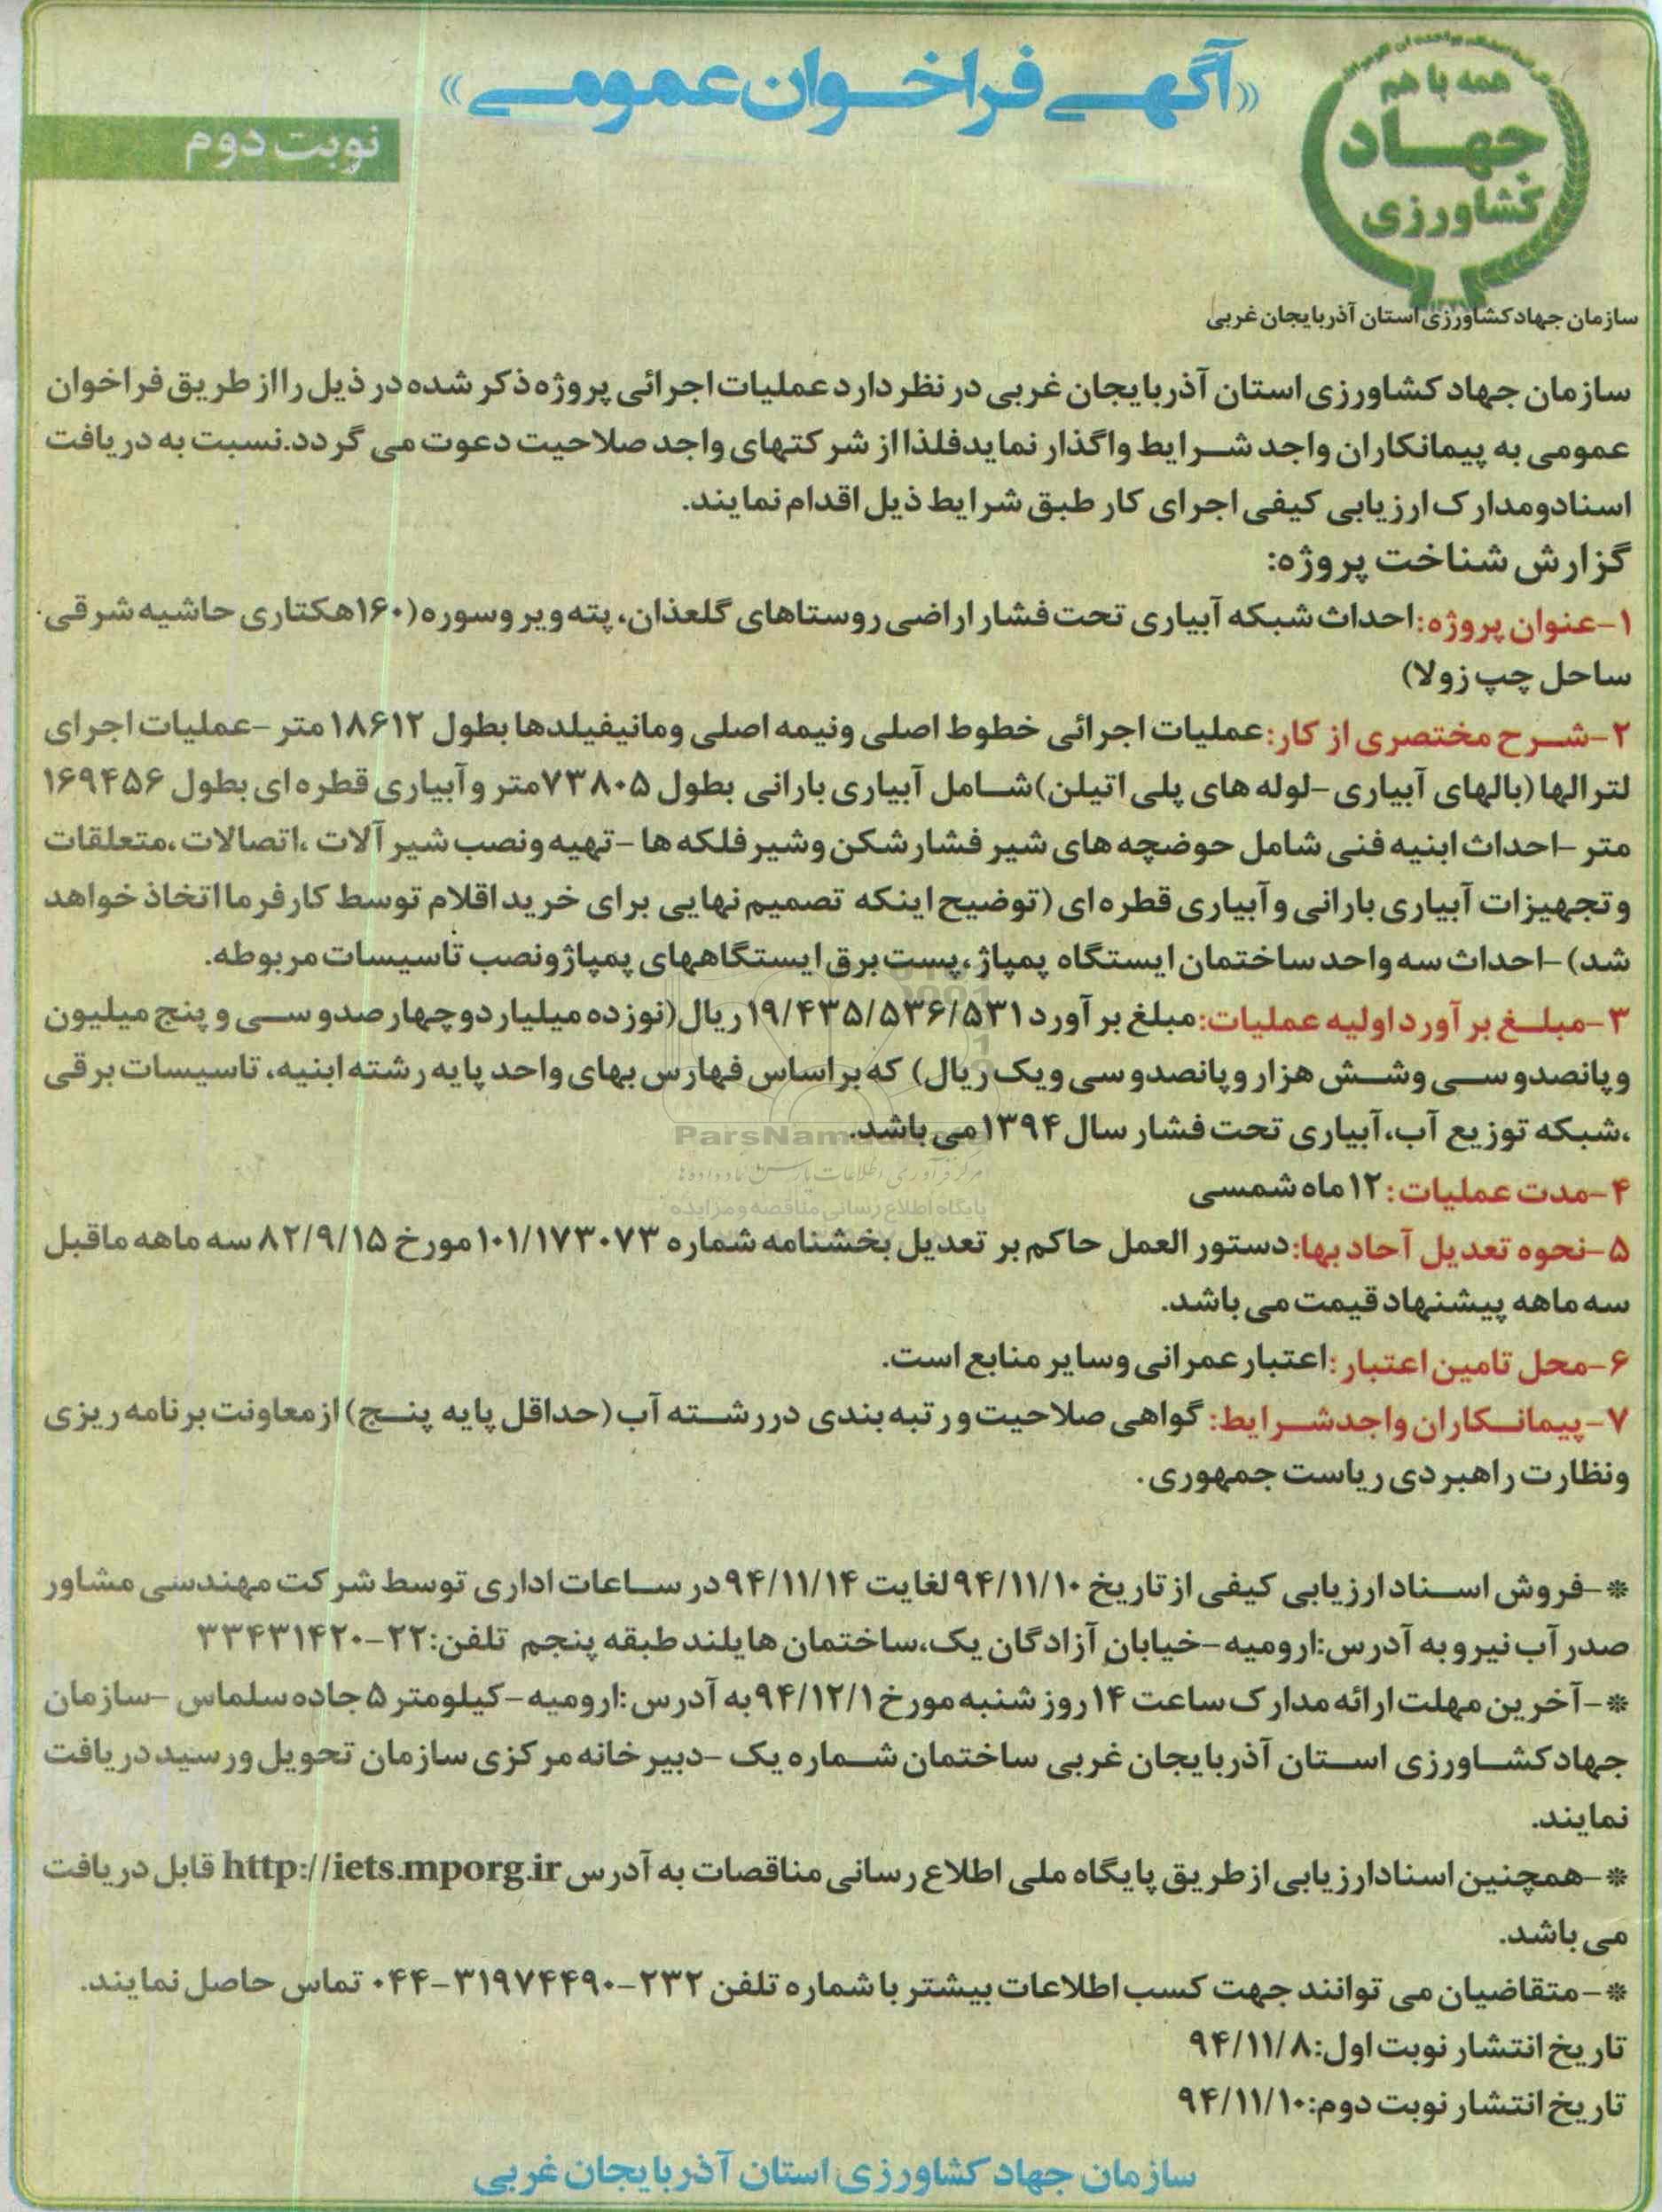 «آگهی فراخوان عمومی»
همه با هم
جهاد
کشاورزی
نوبت دوم
سازمان جهاد کشاورزی استان آذربایجان غربی
سازمان جهاد کشاورزی استان آذربایجان غربی در نظر دارد عملیات اجرائی پروژه ذکر شده در ذیل را از طریق فراخوان
عمومی به پیمانکاران واجد شرایط واگذار نماید فلذا از شرکتهای واجد صلاحیت دعوت می گردد. نسبت به دریافت
اسناد و مدارک ارزیابی کیفی اجرای کار طبق شرایط ذیل اقدام نمایند.
گزارش شناخت پروژه:
۱-عنوان پروژه: احداث شبکه آبیاری تحت فشار اراضی روستاهای گلعذان، پته ویر و سوره (۱۶۰ هکتاری حاشیه شرقی
ساحل چپ زولا)
۲-شرح مختصری از کار: عملیات اجرائی خطوط اصلی و نیمه اصلی و مانیفیلدها بطول ۱۸۶۱۲ متر -عملیات اجرای
لترالها (بالهای آبیاری -لوله های پلی اتیلن) شامل آبیاری بارانی بطول ۷۳۸۰۵ متر و آبیاری قطره ای بطول ۱۶۹۴۵۶
متر -احداث ابنیه فنی شامل حوضچه های شیر فشار شکن و شیر فلکه ها -تهیه و نصب شیر آلات ،اتصالات ،متعلقات
و تجهیزات آبیاری بارانی و آبیاری قطره ای (توضیح اینکه تصمیم نهایی برای خرید اقلام توسط کارفرما اتخاذ خواهد
شد) -احداث سه واحد ساختمان ایستگاه پمپاژ ،پست برق ایستگاههای پمپاژ و نصب تاسیسات مربوطه.
۳-مبلغ برآورد اولیه عملیات: مبلغ برآورد ۱۹/۴۳۵/۵۳۶/۵۳۱ ریال (نوزده میلیارد و چهارصد و سی و پنج میلیون
و پانصد و سی و شش هزار و پانصد و سی و یک ریال) که بر اساس فهارس بهای واحد پایه رشته ابنیه، تاسیسات برقی
،شبکه توزیع آب، آبیاری تحت فشار سال ۱۳۹۴ می باشد.
ParsNam
مرکز فرآوری اطلاعات پارس نماد داده ها
۴-مدت عملیات: ۱۲ ماه شمسی
پایگاه اطلاع رسانی مناقصه و مزایده
۵-نحوه تعدیل آحاد بها: دستور العمل حاکم بر تعدیل بخشنامه شماره ۱۰۱/۱۷۳۰۷۳ مورخ ۸۲/۹/۱۵ سه ماهه ماقبل
سه ماهه پیشنهاد قیمت می باشد.
۶-محل تامین اعتبار: اعتبار عمرانی و سایر منابع است.
۷-پیمانکاران واجد شرایط: گواهی صلاحیت و رتبه بندی در رشته آب (حداقل پایه پنج) از معاونت برنامه ریزی
و نظارت راهبردی ریاست جمهوری.
*-فروش اسناد ارزیابی کیفی از تاریخ ۹۴/۱۱/۱۰ لغایت ۹۴/۱۱/۱۴ در ساعات اداری توسط شرکت مهندسی مشاور
صدر آب نیرو به آدرس: ارومیه -خیابان آزادگان یک، ساختمان هایلند طبقه پنجم تلفن: ۲۲-۳۳۴۳۱۴۲۰
*-آخرین مهلت ارائه مدارک ساعت ۱۴ روز شنبه مورخ ۹۴/۱۲/۱ به آدرس: ارومیه -کیلومتر ۵ جاده سلماس -سازمان
جهاد کشاورزی استان آذربایجان غربی ساختمان شماره یک -دبیرخانه مرکزی سازمان تحویل و رسید دریافت
نمایند.
*-همچنین اسناد ارزیابی از طریق پایگاه ملی اطلاع رسانی مناقصات به آدرس http://iets.mporg.ir قابل دریافت
می باشد.
*-متقاضیان می توانند جهت کسب اطلاعات بیشتر با شماره تلفن ۲۳۲-۳۱۹۷۴۴۹۰-۰۴۴ تماس حاصل نمایند.
تاریخ انتشار نوبت اول: ۹۴/۱۱/۸
تاریخ انتشار نوبت دوم: ۹۴/۱۱/۱۰
سازمان جهاد کشاورزی استان آذربایجان غربی